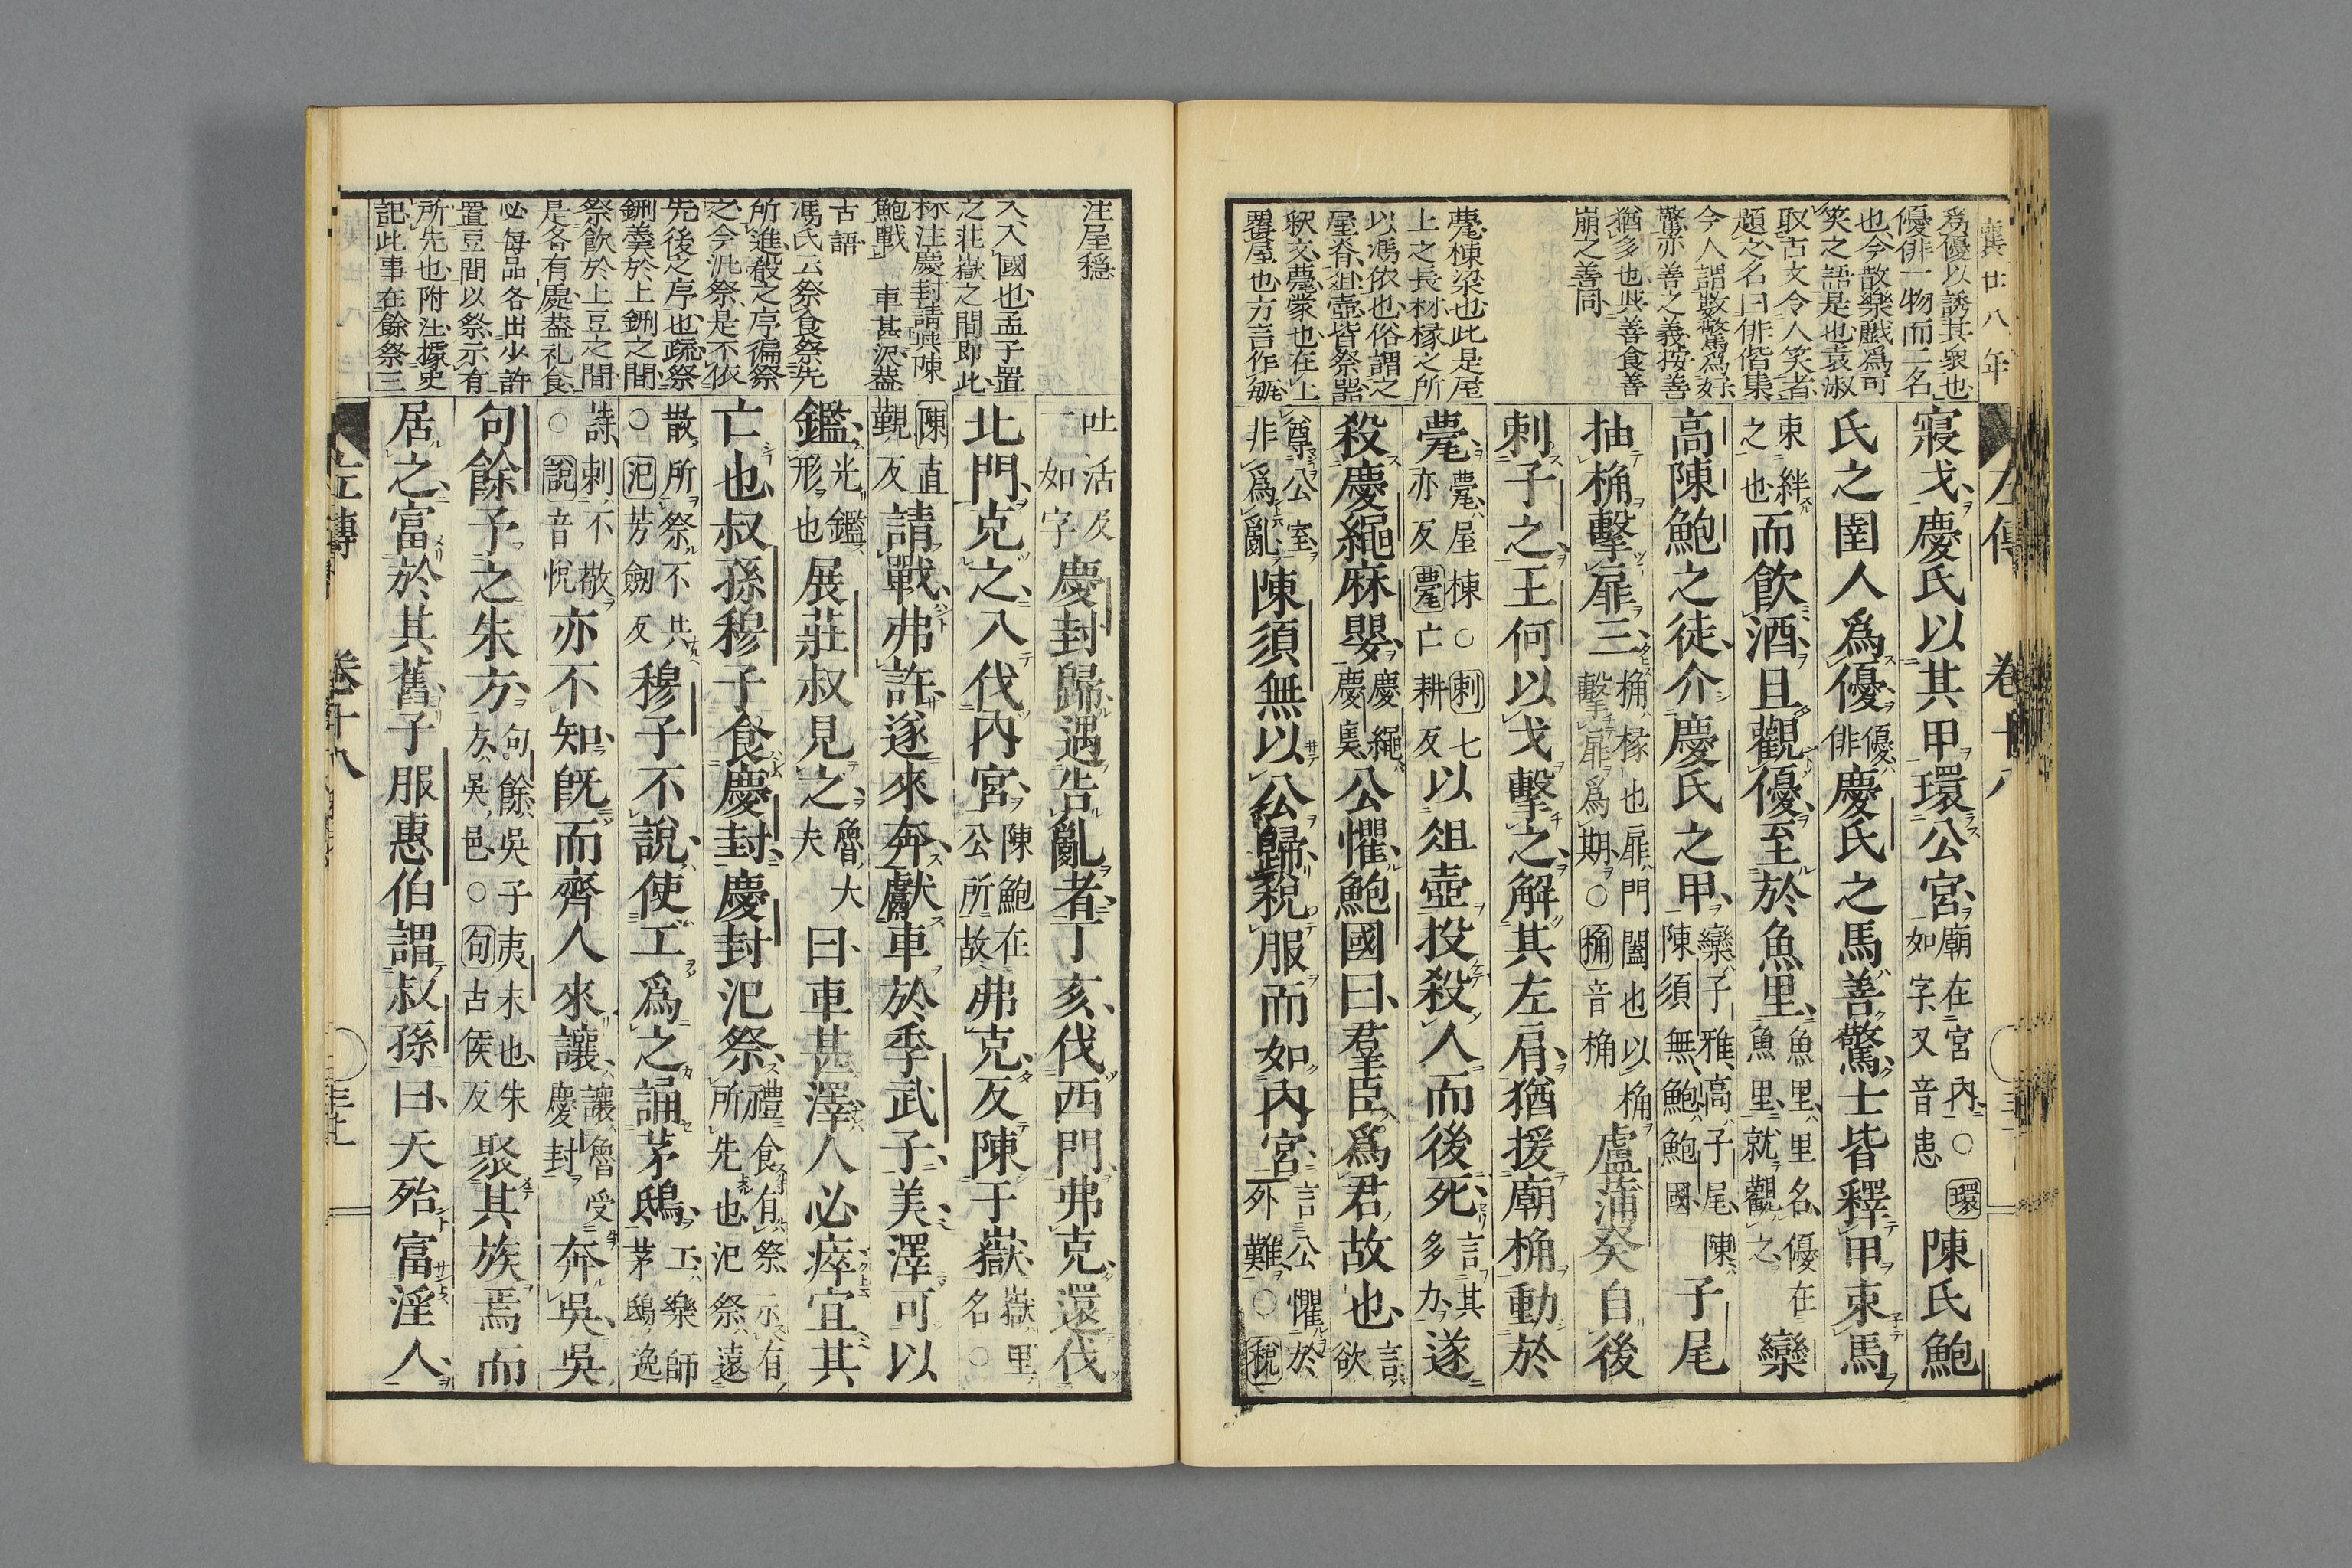 襄廿八年
爲優以誘其衆也
優俳一物而二名
也今散樂戲爲可
笑之語是也袁淑
取古文令人笑者
題之名曰俳偕集
今人謂數驚爲好
驚亦善之義按善
猶多也此善食善
崩之善同
甍棟梁也此是屋
上之長材椽之所
以馮依也俗謂之
屋脊俎壺皆祭器
釈文甍蒙也在上
覆屋也方言作甋
左傳 卷十八
寢戈慶氏以其甲環公宮廟在宮內○環如字又音患陳氏鮑
氏之圉人爲優優俳慶氏之馬善驚士皆釋甲束馬
束絆之也而飲酒且觀優至於魚里魚里里名優在魚里就觀之欒
高陳鮑之徒介慶氏之甲欒子雅高子尾陳陳須無鮑鮑國子尾
抽桷擊扉三桷椽也扉門闔也以桷擊扉爲期○桷音桷盧蒲癸自後
刺子之王何以戈擊之解其左肩猶援廟桷動於
甍甍屋棟○刺七亦反甍亡耕反以俎壺投殺人而後死言其多力遂
殺慶繩麻嬰慶繩慶䢼公懼鮑國曰羣臣爲君故也言欲
尊公室非爲亂陳須無以公歸稅服而如內宮言公懼於外難○稅
注屋穏
入入國也孟子置
之荘嶽之間即此
标注慶封請與陳
鮑戰 車甚沢葢
古語
馮氏云祭食祭先
所進殽之序徧祭
之今汎祭是不依
先後之序也疏祭
鉶羹於上鉶之間
祭飲於上豆之間
是各有處葢礼食
必每品各出少許
置豆間以祭示有
所先也附注據史
記此事在餘祭三
吐活反如字慶封歸遇告亂者丁亥伐西門弗克還伐
北門克之入伐內宮陳鮑在公所故弗克反陳于嶽嶽里名○
陳直覲反請戰弗許遂來奔獻車於季武子美澤可以
鑑光鑑形也展莊叔見之魯大夫曰車甚澤人必瘁宜其
亡也叔孫穆子食慶封慶封汜祭禮食有祭示有所先也汜祭遠
散所祭不共○汜芳劔反穆子不說使工爲之誦茅鴟工樂師茅鴟逸
詩刺不敬○說音悅亦不知旣而齊人來讓讓魯受慶封奔吳吳
句餘予之朱方句餘吳子夷末也朱方吳邑○句古侯反聚其族焉而
居之富於其舊子服惠伯謂叔孫曰天殆富淫人
左傳 卷十八